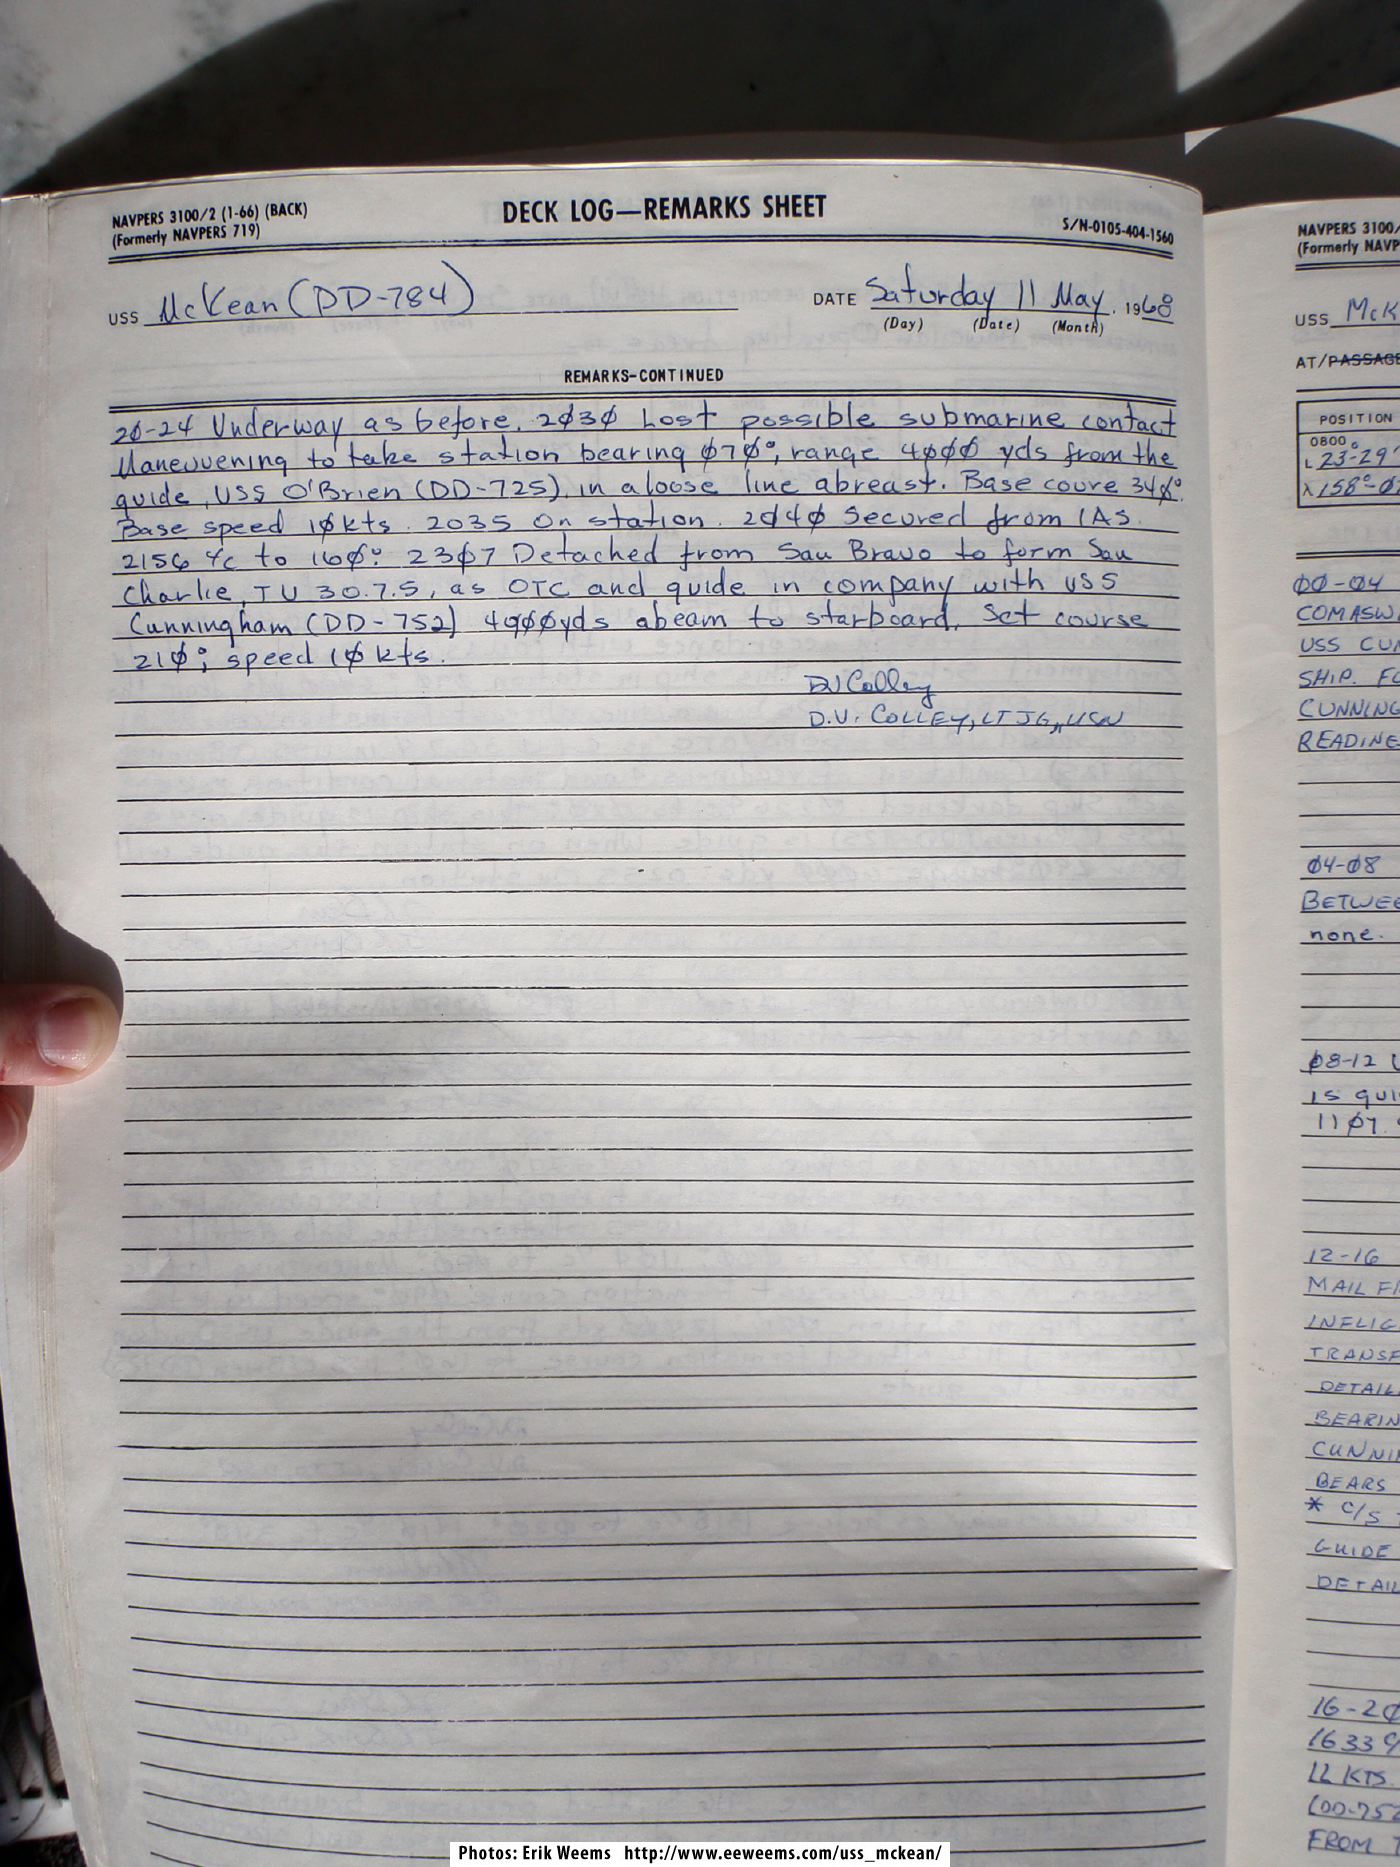 NAVPERS 3100/2 (1-66) (BACK)
(Formerly NAVPERS 719)
DECK LOG—REMARKS SHEET
S/N-0105-404-1560
USS McKean (DD-784)
DATE Saturday 11 May, 1968
(Day) (Date) (Month)
REMARKS-CONTINUED
20-24 Underway as before. 2030 Lost possible submarine contact
Maneuvening to take station bearing 070°, range 4000 yds from the
guide, USS O'Brien (DD-725), in a loose line abreast. Base coure 340°.
Base speed 10kts. 2035 On station. 2040 Secured from IAS.
2156 c/c to 160°. 2307 Detached from Sau Bravo to form Sau
Charlie, TU 30.7.5, as OTC and guide in company with USS
Cunningham (DD-752) 4000yds abeam to starboard. Set course
210°, speed 10 kts.
DV Colley
D.V. COLLEY, LTJG, USN
NAVPERS 3100/
(Formerly NAVP
USS McK
AT/PASSAGE
POSITION
0800
L 23-29
λ 158°-0
00-04
COMASW
USS CUN
SHIP. FO
CUNNING
READINE
04-08
BETWEE
none.
08-12 U
is gui
1107.
12-16
MAIL FI
INFLIG
TRANSF
DETAIL
BEARIN
CUNNI
BEARS
* C/S
GUIDE
DETAIL
16-20
1633 c/
12 KTS.
(DD-752
FROM T
Photos: Erik Weems http://www.eeweems.com/uss_mckean/